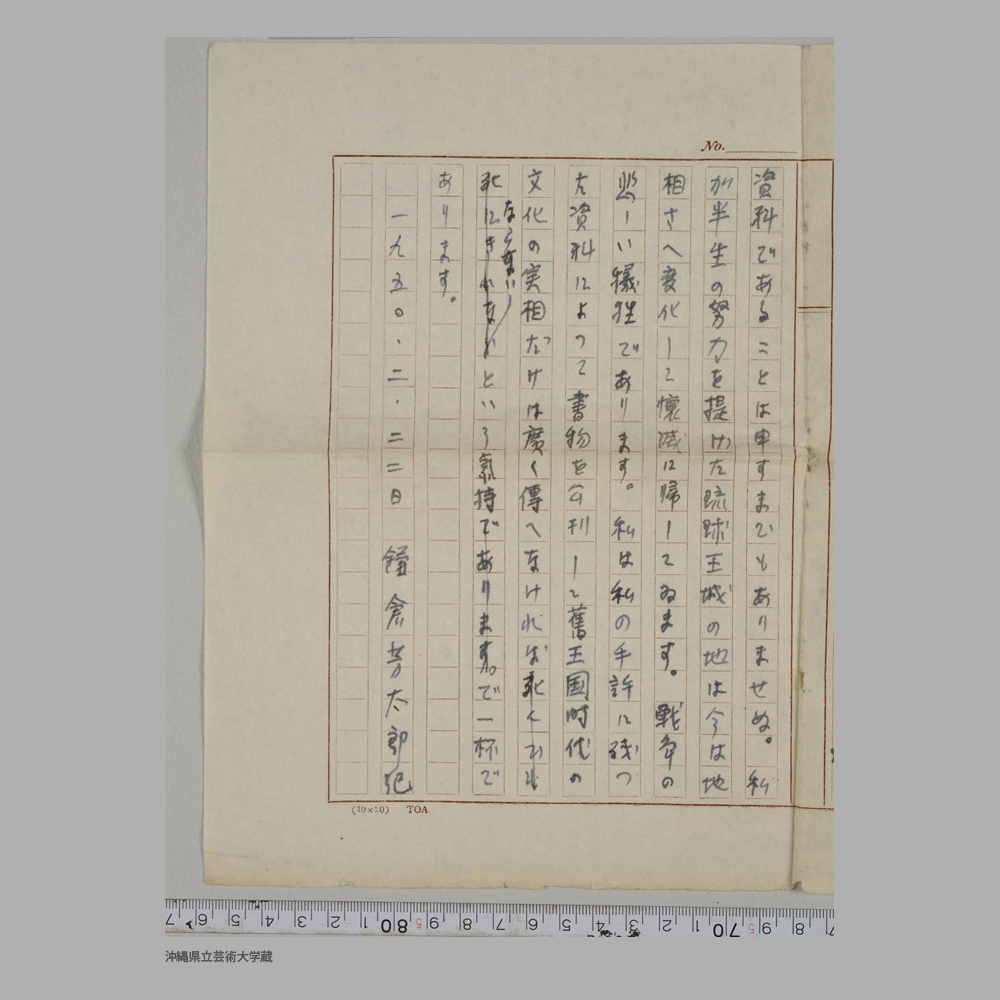 No.
資料であることは申すまでもありませぬ。私
が半生の努力を提げた琉球王城の地は今は地
相さへ変化して懐滅に帰してゐます。戦争の
悲しい犠牲であります。私は私の手許に残つ
た資料によつて書物を公刊して舊王国時代の
文化の実相だけは廣く傳へなければ死
ならない
死にきれないという氣持でありますで一杯で
あります。
一九五〇、二・二二日 鎌倉芳太郎記
(10×10) TOA
7 6 5 4 3 2 1 80 9 5 8 7 6 5 4 3 2 1 70 5 9 8
沖縄県立芸術大学蔵